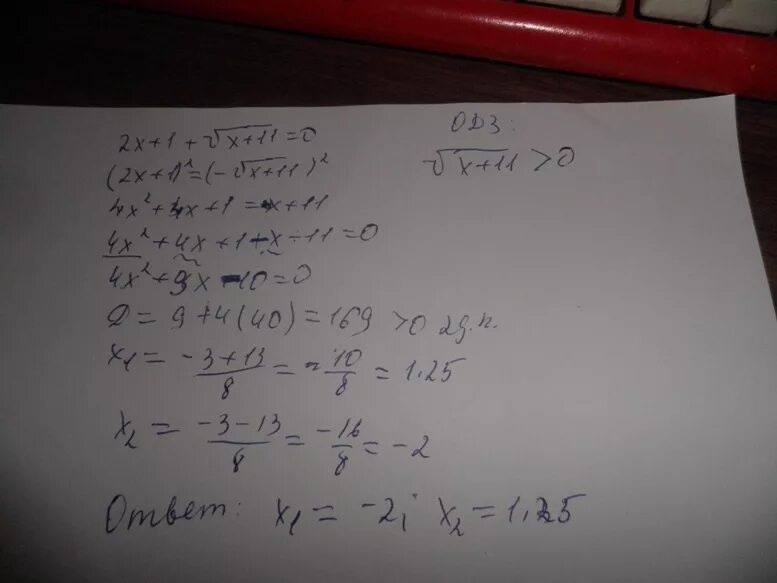 2x+1+√x+11=0
ОДЗ:
(2x+1)²=(-√x+11)²
√x+11 >0
4x²+4x+1=x+11
4x²+4x+1-x-11=0
4x²+3x-10=0
D=9+4(40)=169 >0 2д.к.
x₁= -3+13/8 = 10/8 = 1.25
x₂= -3-13/8 = -16/8 = -2
Ответ: x₁= -2; x₂=1.25